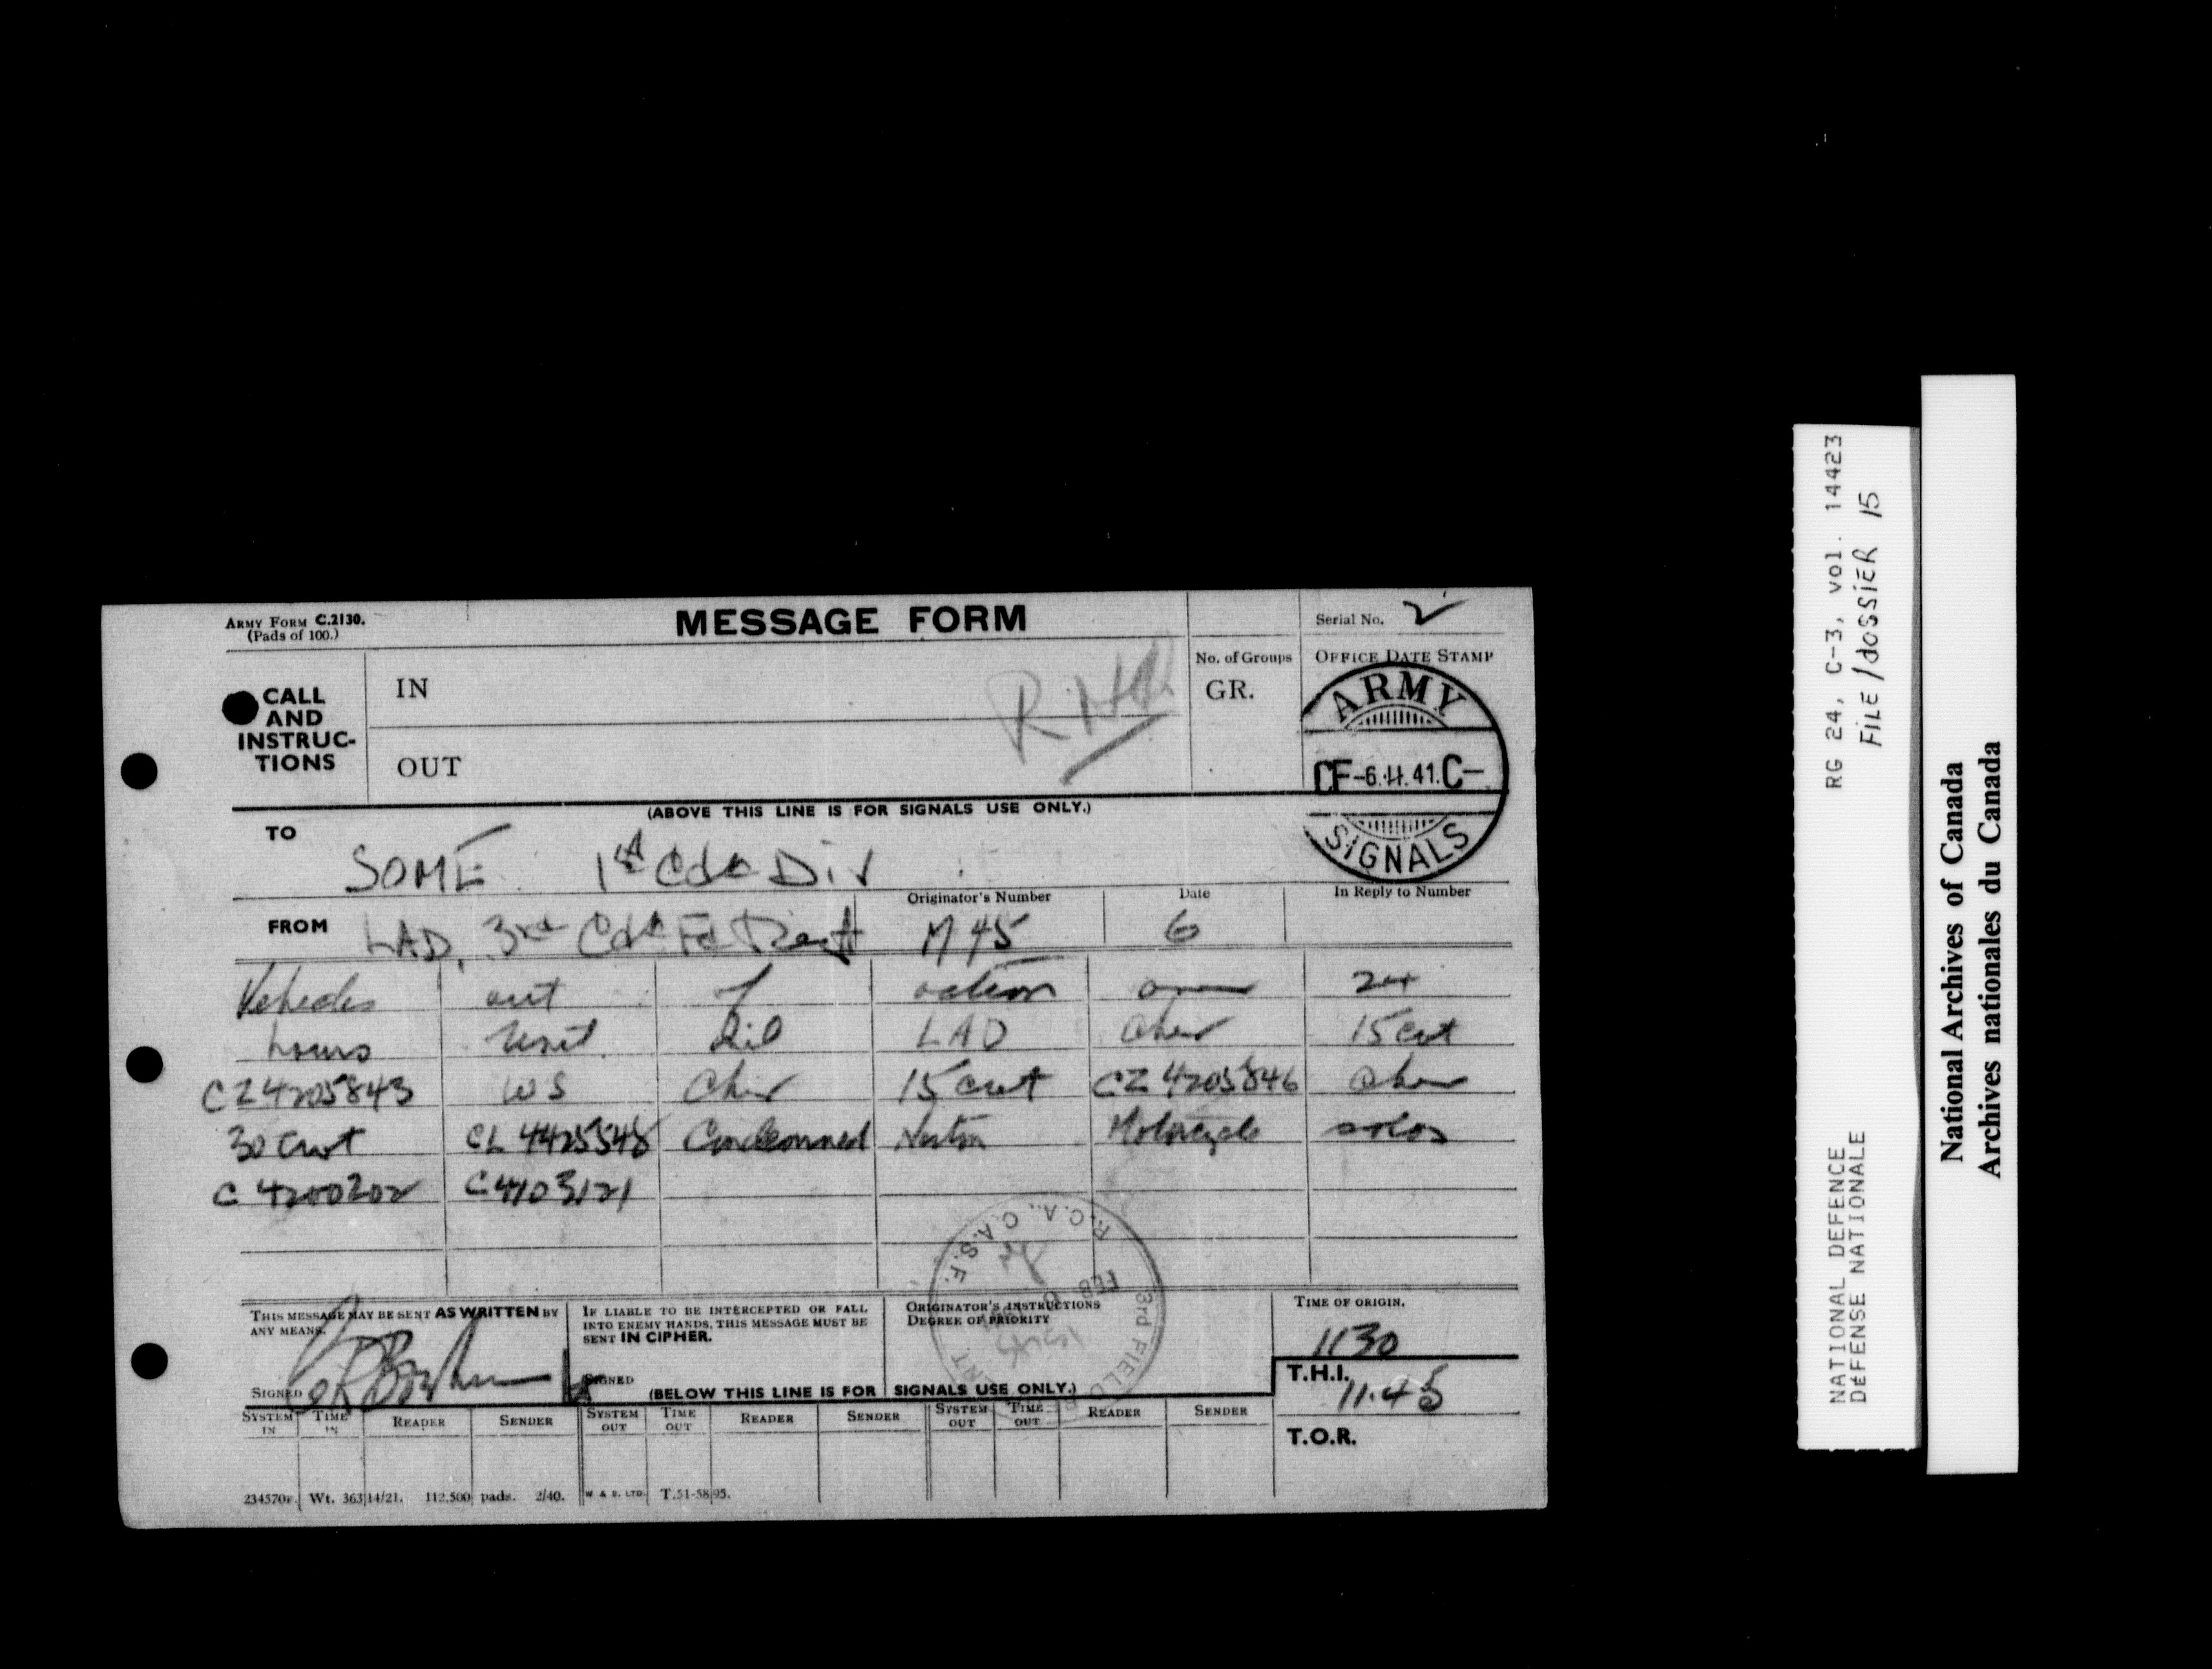 ARMY FORM C.2130.
(Pads of 100.)
MESSAGE FORM
Serial No. 2
CALL AND INSTRUC- TIONS
IN
OUT
No. of Groups
GR.
OFFICE DATE STAMP
ARMY
CF-6.II.41.C-
SIGNALS
(ABOVE THIS LINE IS FOR SIGNALS USE ONLY.)
TO
SOME 1st Cdn Div
FROM LAD, 3rd Cdn Fd Regt
Originator's Number
M 45
Date
6
In Reply to Number
Vehicles out of action over 24
hours Unit LAD Chev 15 cwt
CZ4205843 WS Chev 15 cwt CZ 4205846 Chev
30 cwt CL 4425548 Condemned Norton Motorcycle solos
C 4200202 C4103121
R.C.A., C.A.S.F.
FEB
3rd FIELD
THIS MESSAGE MAY BE SENT AS WRITTEN BY
ANY MEANS.
SIGNED
IF LIABLE TO BE INTERCEPTED OR FALL
INTO ENEMY HANDS, THIS MESSAGE MUST BE
SENT IN CIPHER.
SIGNED
ORIGINATOR'S INSTRUCTIONS
DEGREE OF PRIORITY
TIME OF ORIGIN.
1130
T.H.I.
11.45
T.O.R.
(BELOW THIS LINE IS FOR SIGNALS USE ONLY.)
SYSTEM IN TIME IN READER SENDER SYSTEM OUT TIME OUT READER SENDER SYSTEM OUT TIME OUT READER SENDER
234570F. Wt. 363 14/21. 112,500 pads. 2/40. W & S. LTD. T.51-5895.
RG 24, C-3, vol. 14423
FILE/dossier 15
NATIONAL DEFENCE
DÉFENSE NATIONALE
National Archives of Canada
Archives nationales du Canada